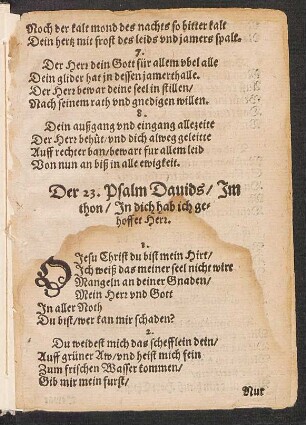 Noch der kalt mond des nachts so bitter kalt
Dein hertz mit frost des leids vnd jamers spalt.
7.
Der Herr dein Gott für allem vbel alle
Dein glider hat in dessen jamerthalle.
Der Herr bewar deine seel in stillen/
Nach seinem rath vnd gnedigen willen.
8.
Dein außgang vnd eingang allezeite
Der Herr behüt/ vnd dich alweg geleitte
Auff rechter ban/ bewart fur allem leid
Von nun an biß in alle ewigkeit.
Der 23. Psalm Dauids/ Im
thon/ In dich hab ich ge-
hoffet Herr.
1.
O Jesu Christ du bist mein Hirt/
Ich weiß das meiner seel nicht wirt
Mangeln an deiner Gnaden/
Mein Herr vnd Gott
In aller Noth
Du bist/ wer kan mir schaden?
2.
Du weidest mich das schefflein dein/
Auff grüner Aw/ vnd heist mich fein
Zum frischen Wasser kommen/
Gib mir mein furst/
Nur